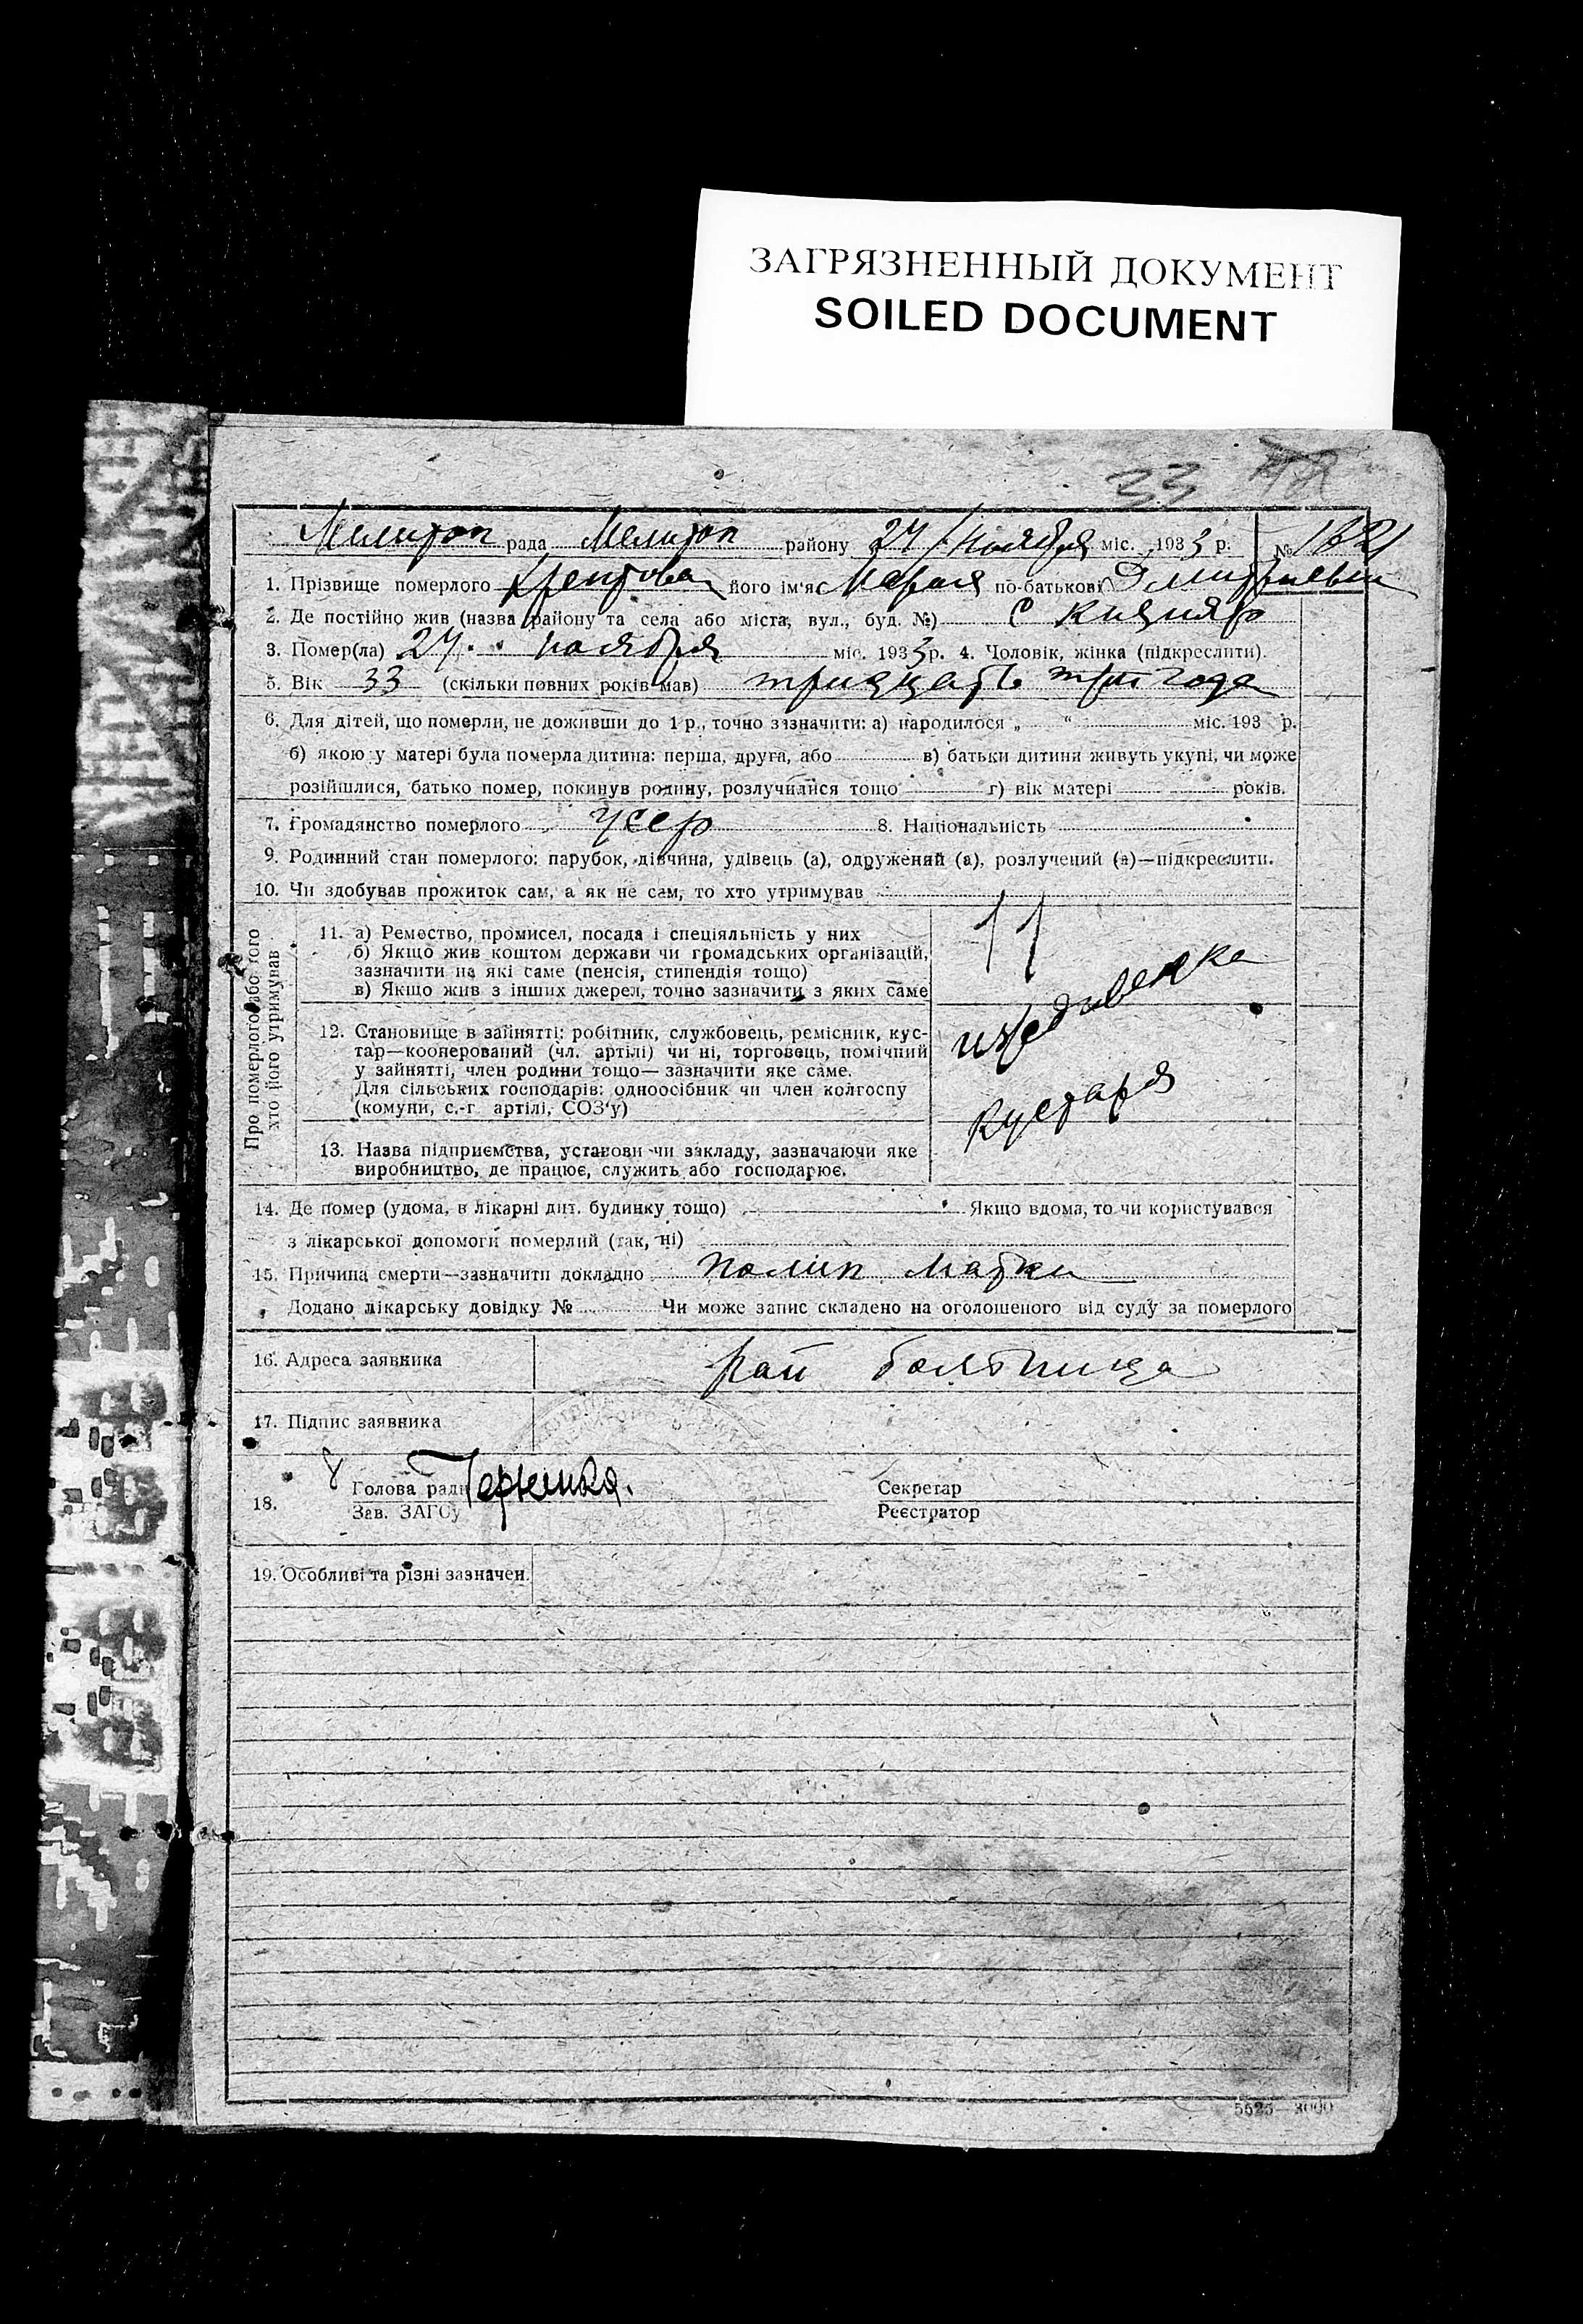 ЗАГРЯЗНЕННЫЙ ДОКУМЕНТ
SOILED DOCUMENT
33
Мелитоп рада Мелитоп району 27 ноября міс. 1933 р. №
1. Прізвище померлого його ім'я Мария по-батькові Дмитриевна
2. Де постійно жив (назва району та села або міста, вул., буд. №) с Кизияр
3. Помер(ла) 27 ноября міс. 1933 р. 4. Чоловік, жінка (підкреслити).
5. Вік 33 (скільки повних років мав) тридцать три года
6. Для дітей, що померли, не доживши до 1 р., точно зазначити: а) народилося „ “ міс. 193 р.
б) якою у матері була померла дитина: перша, друга, або в) батьки дитини живуть укупі, чи може
розійшлися, батько помер, покинув родину, розлучилися тощо г) вік матері років.
7. Громадянство померлого усср 8. Національність
9. Родинний стан померлого: парубок, дівчина, удівець (а), одружений (а), розлучений (а)—підкреслити.
10. Чи здобував прожиток сам, а як не сам, то хто утримував
Про померлого або того хто його утримував
11. а) Ремество, промисел, посада і спеціяльність у них
б) Якщо жив коштом держави чи громадських організацій,
зазначити на які саме (пенсія, стипендія тощо)
в) Якщо жив з інших джерел, точно зазначити з яких саме
11
иждивенка
12. Становище в зайнятті: робітник, службовець, ремісник, кус-
тар—кооперований (чл. артілі) чи ні, торговець, помічний
у зайнятті, член родини тощо— зазначити яке саме.
Для сільських господарів: одноосібник чи член колгоспу
(комуни, с.-г. артілі, СОЗ'у)
кустаря
13. Назва підприємства, установи чи закладу, зазначаючи яке
виробництво, де працює, служить або господарює.
14. Де помер (удома, в лікарні дит. будинку тощо) Якщо вдома, то чи користувався
з лікарської допомоги померлий (так, ні)
15. Причина смерти—зазначити докладно полип матки
Додано лікарську довідку № Чи може запис складено на оголошеного від суду за померлого
16. Адреса заявника рай больница
17. Підпис заявника
18. Голова ради Секретар
Зав. ЗАГСу Реєстратор
19. Особливі та різні зазначен.
5525—3000